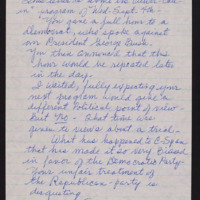 in" program of Wed. Sept 9th -
"You gave a full hour to a
Democrat, who spoke against
our President George Bush.
You then announced that this
hour would be repeated later
in the day.
I waited, fully expecting your
next program would give a
different Political point of view -
But No - What time was
given to views about a trial.
What has happened to C-Span
that has made it so very biased
in favor of the Democratic Party.
Your unfair treatment of
the Republican party is
disgusting.